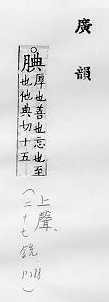 廣韻
腆厚也善也忘也至
也他典切十五
上聲、
(二十七銑